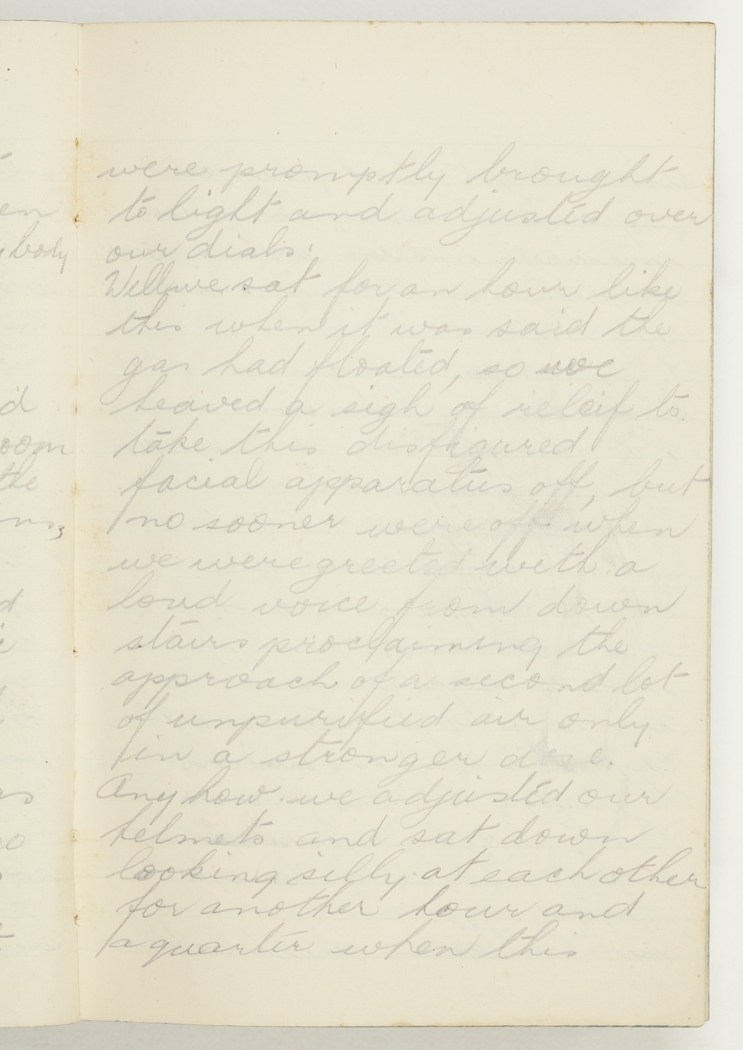 were promptly brought
to light and adjusted over
our dials.
Well we sat for an hour like
this when it was said the
gas had floated, so we
heaved a sigh of releif to
take this disfigured
facial apparatus off, but
no sooner were off when
we were greeted with a
loud voice from down
stairs proclaiming the
approach of a second lot
of unpurified air only
in a stronger dose.
Anyhow we adjusted our
helmets and sat down
looking silly at each other
for another hour and
a quarter when this
en
body
d
oom
the